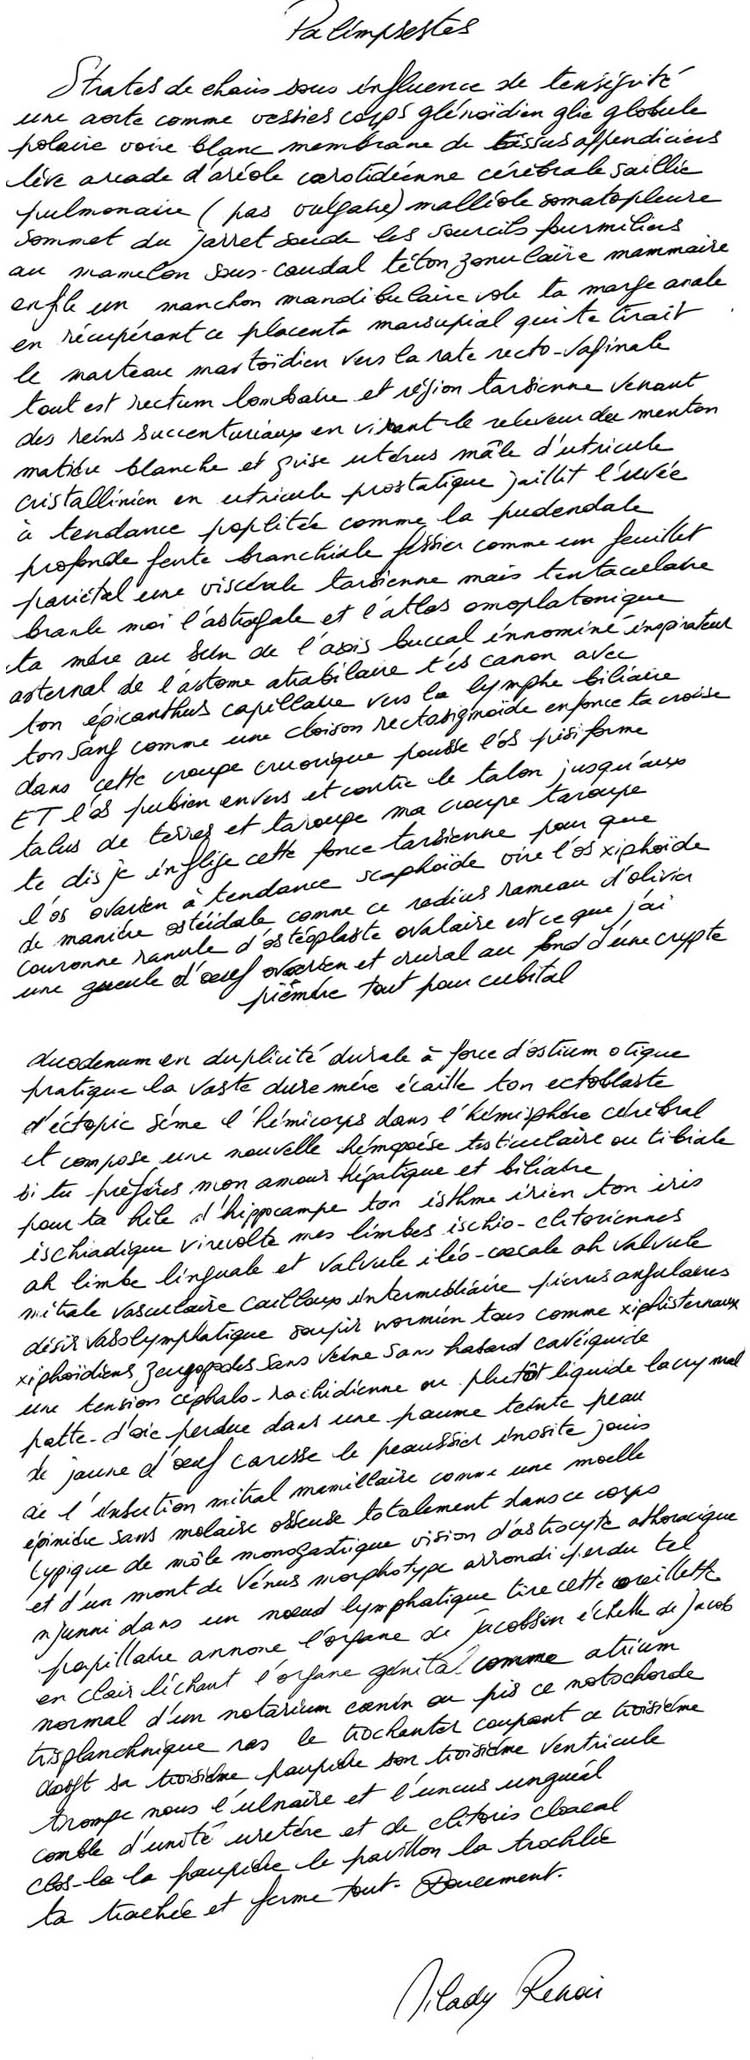 Palimpsestes
Strates de chairs sous influence de tenségrité
une aorte comme vessies corps glénoïdien glie globule
polaire voire blanc membrane de tissus appendiciers
lève arcade d'aréole carotidienne cérébrale saillie
pulmonaire (pas vulgaire) malléole somatopleure
sommet du jarret soude les sourcils fourmiliers
au mamelon sous-caudal téton zonulaire mammaire
enfile un manchon mandibulaire vole ta marge anale
en récupérant ce placenta marsupial qui te tirait
le marteau mastoïdien vers la rate recto-vaginale
tout est rectum lombaire et région tarsienne venant
des reins succenturiaux en virant le releveur du menton
matière blanche et grise utérus mâle d'utricule
cristallinien en utricule prostatique jaillit l'uvée
à tendance poplitée comme la pudendale
profonde fente branchiale fessier comme un feuillet
pariétal une viscérale tarsienne mais tentaculaire
branle moi l'astragale et l'atlas omoplatonique
ta mère au sein de l'axis buccal innominé inspirateur
asternal de l'astome atrabilaire t'es canon avec
ton épicanthus capillaire vers la lymphe biliaire
ton sang comme une cloison rectosigmoïde enfonce ta croise
dans cette croupe cruorique pousse l'os pisiforme
ET l'os pubien envers et contre le talon jusqu'aux
talus de terres et taroupe ma croupe taroupe
te dis je inflige cette fonce tarsienne pour que
l'os ovarien à tendance scaphoïde vire l'os xiphoïde
de manière ostéidale comme ce radius rameau d'olivier
couronne ranule d'ostéoplaste ovalaire est ce que j'ai
une gueule d'oeuf ovarien et crural au fond d'une crypte
pièmère tout pour cubital
duodenum en duplicité durale à force d'ostium otique
pratique la vaste dure mère écaille ton ectoblaste
d'éctopie sème l'hémicorps dans l'hémisphère cérébral
et compose une nouvelle hémopoèse testiculaire ou tibiale
si tu préfères mon amour hépatique et biliaire
pour ta hile d'hippocampe ton isthme irien ton iris
ischiadique virevolte mes limbes ischio-clitoriennes
ah limbe linguale et valvule iléo-caecale oh valvule
mitrale vasculaire cailloux intermédiaire pierres angulaires
désir vasolymphatique soupir wormien tous comme xiphisternaux
xiphoïdiens zeugopodes sans veine sans hasard cavéiguide
une tension céphalo-rachidienne ou plutôt liquide lacrymal
patte-d'oie perdue dans une paume teinte peau
de jaune d'oeuf caresse le peaussier inosite jouis
de l'insertion mitral mamillaire comme une moelle
épinière sans molaire osseuse totalement dans ce corps
typique de môle monogastrique vision d'astrocyte athoracique
et d'un mont de Vénus morphotype arrondi perdu tel
n'junni dans un noeud lymphatique tire cette oreillette
papillaire annone l'organe de Jacobson échelle de Jacob
en clair léchant l'organe génital comme atrium
normal d'un notarium canin ou pis ce notochorde
trisplanchnique ras le trochanter coupant ce troisième
doigt sa troisième paupière son troisième ventricule
trompe nous l'ulnaire et l'uncus unguéal
comble d'unité uretère et de clitoris cloacal
clos-la la paupière le pavillon la trochlée
ta trachée et ferme tout. Doucement.
Milady Renoir